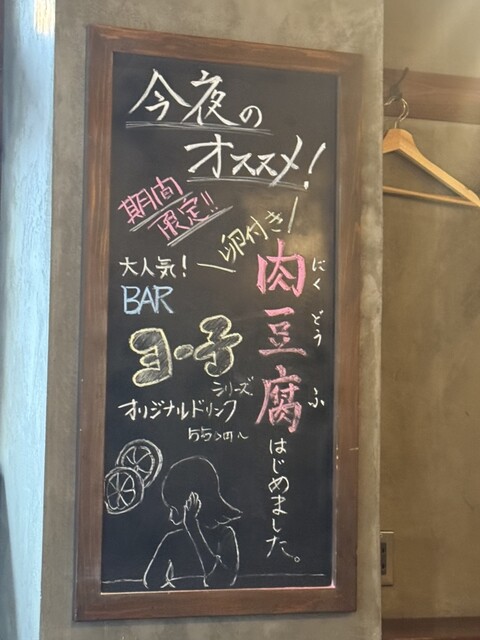 今夜の
オススメ!
期間
限定!!
卵付き
肉豆腐
にくどうふ
はじめました。
大人気!
BAR
ヨ・子
シリーズ
オリジナルドリンク
550円~